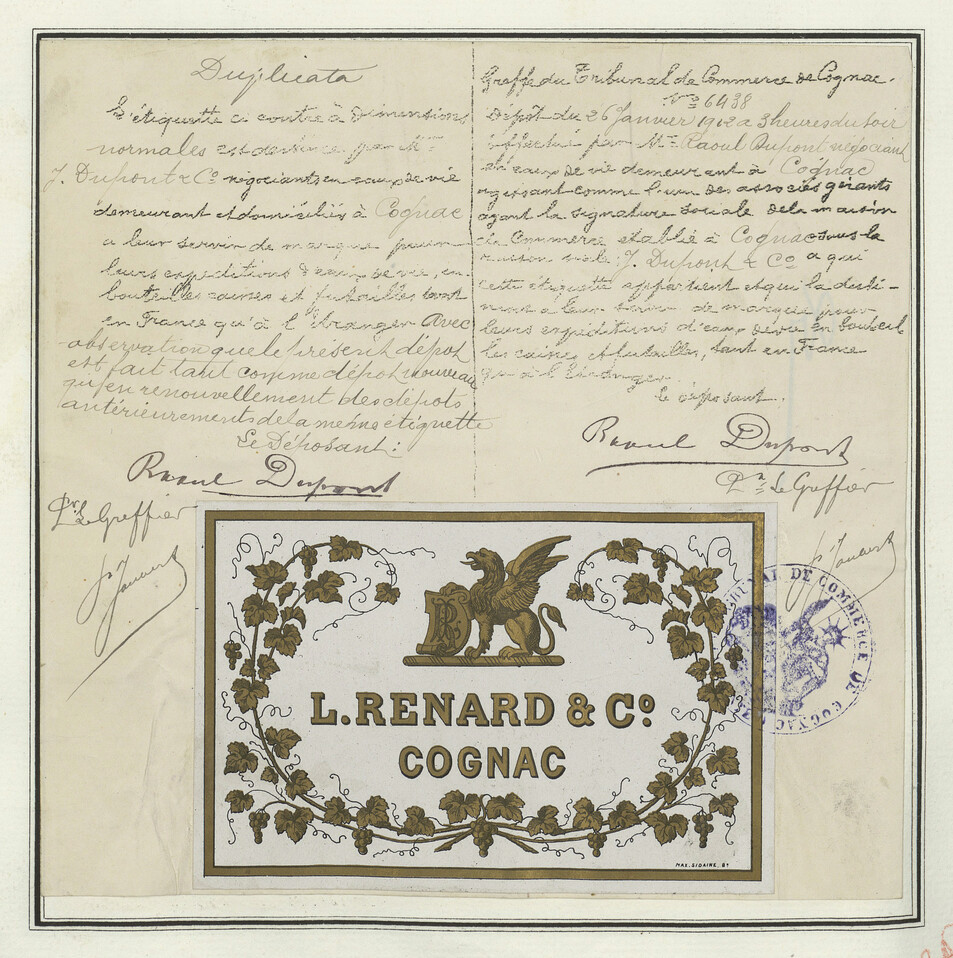 Duplicata
L'étiquette ci contre à Dimensions
normales est destinée par MM
J. Dupont & Co négociants en eaux de vie
demeurant et domiciliés à Cognac
a leur servir de marque pour
leurs expeditions d'eaux de vie, en
bouteilles caisses et futailles tant
en France qu'à l'étranger Avec
observation que le présent dépot
est fait tant comme dépot nouveau
qu'en renouvellement des dépots
antérieurements de la même étiquette
Le Déposant:
Raoul Dupont
Pr. Le Greffier
Greffe du Tribunal de Commerce de Cognac.
No 6438
Dépot du 26 Janvier 1912 a 3 heures du soir
effectué par Mr Raoul Dupont négociant
en eaux de vie demeurant à Cognac
agissant comme l'un des associés gérants
ayant la signature sociale de la maison
de Commerce etablie à Cognac sous la
raison sociale: J. Dupont & Co a qui
cette étiquette appartient et qui la desti-
nent a leur servir de marque pour
leurs expeditions d'eaux de vie en bouteil
les caisses et futailles, tant en France
qu'à l'étranger.
Le déposant.
Raoul Dupont
Pr Le Greffier
L. RENARD & Co
COGNAC
MAX. SIDAINE. Bx
TRIBUNAL DE COMMERCE DE COGNAC